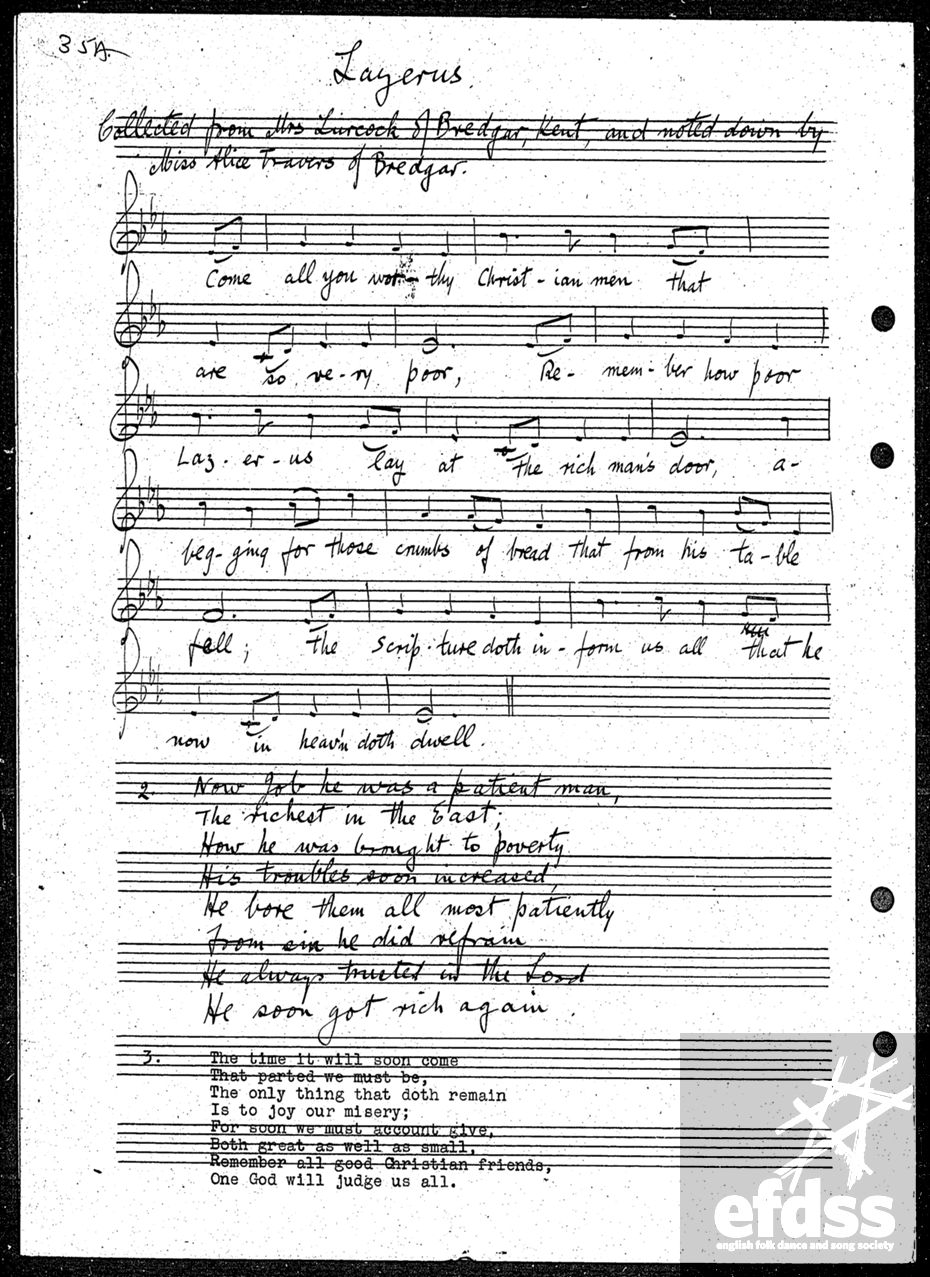 35A.
Lazerus.
Collected from Mrs Lurcock of Bredgar, Kent, and noted down by
Miss Alice Travers of Bredgar.
Come all you wor-thy Christ-ian men that
are so ve-ry poor, Re- mem-ber how poor
Laz-er-us lay at the rich man's door, a-
beg-ging for those crumbs of bread that from his ta-ble
fell; The scrip-ture doth in-form us all that he
now in heav'n doth dwell.
2. Now Job he was a patient man,
The richest in the East;
How he was brought to poverty
His troubles soon increased,
He bore them all most patiently
From sin he did refrain
He always trusted in the Lord
He soon got rich again.
3. The time it will soon come
That parted we must be,
The only thing that doth remain
Is to joy our misery;
For soon we must account give,
Both great as well as small,
Remember all good Christian friends,
One God will judge us all.
efdss
english folk dance and song society